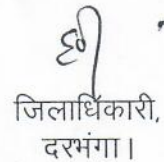 जिलाधिकारी,
दरभंगा।